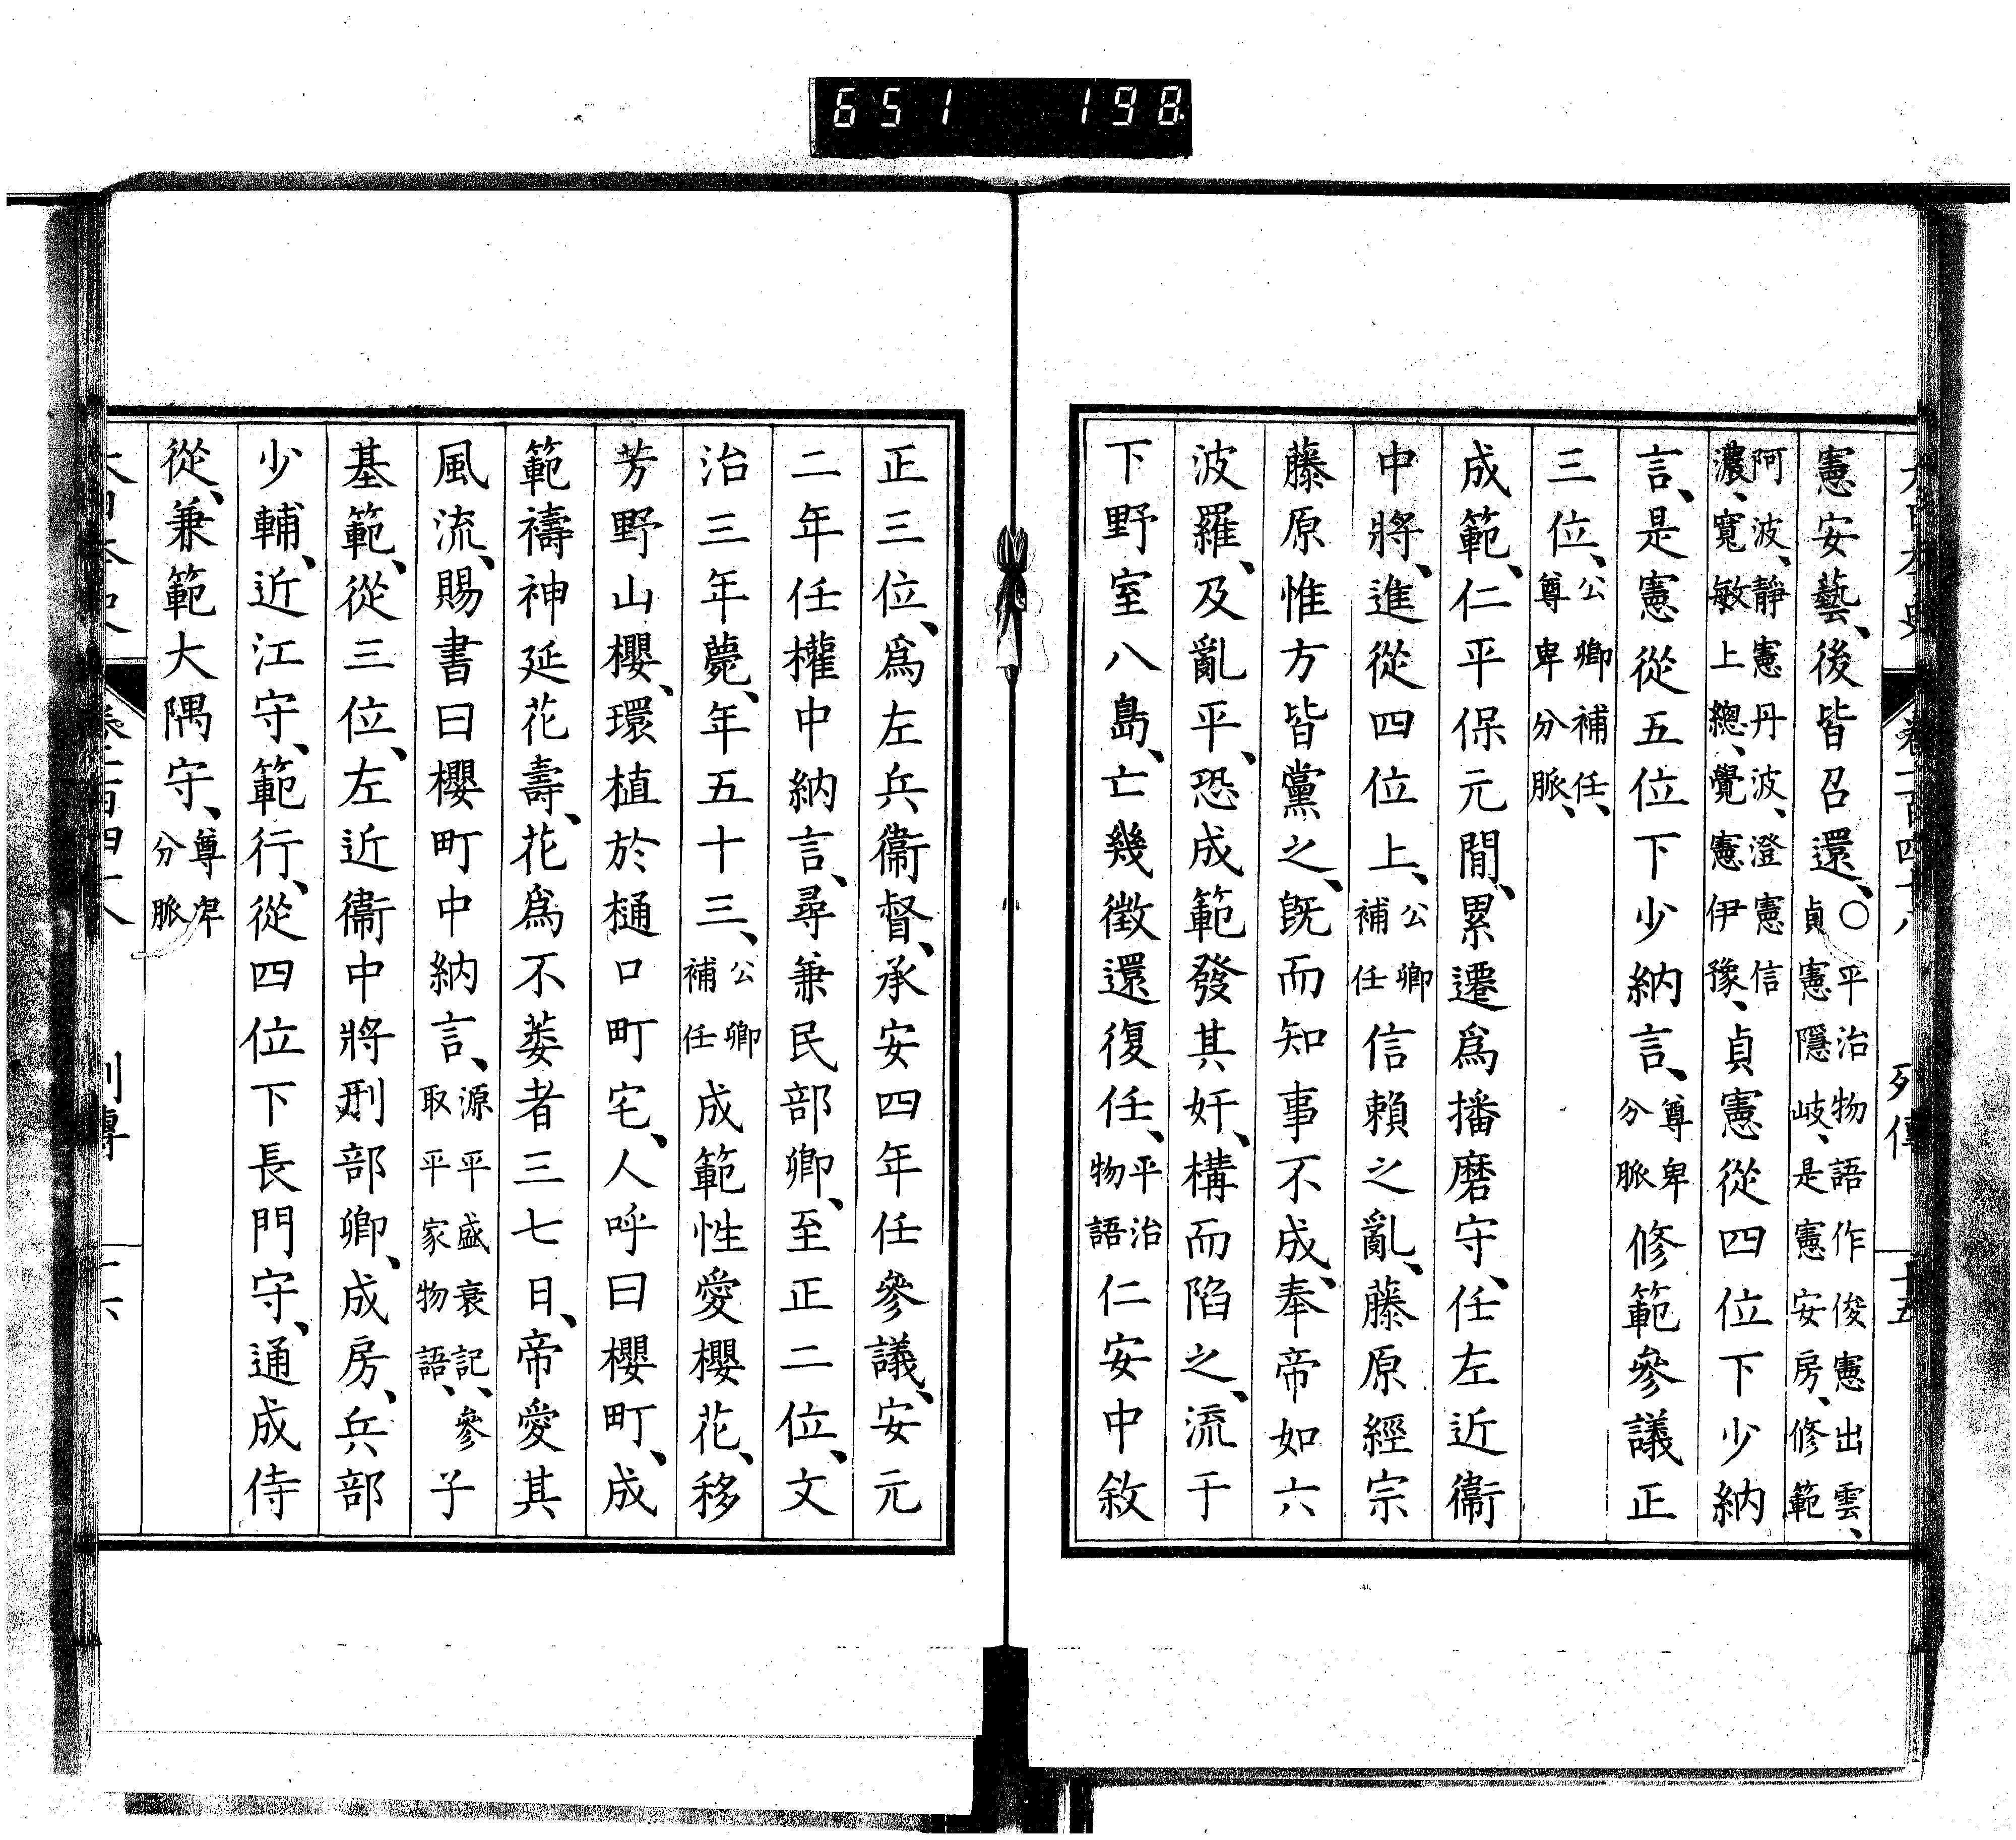 651 198
大日本史 卷一百四十八 列傳 十五
憲安藝、後皆召還、○平治物語作俊憲出雲、貞憲隱岐、是憲安房、修範
阿波、靜憲丹波、澄憲信濃、寬敏上總、覺憲伊豫、貞憲從四位下少納
言、是憲從五位下少納言、尊卑分脈修範參議正
三位、公卿補任、尊卑分脈、
成範、仁平保元閒、累遷爲播磨守、任左近衞
中將、進從四位上、公卿補任信賴之亂、藤原經宗
藤原惟方皆黨之、既而知事不成、奉帝如六
波羅、及亂平、恐成範發其奸、構而陷之、流于
下野室八島、亡幾徵還復任、平治物語仁安中敘
正三位、爲左兵衞督、承安四年任參議、安元
二年任權中納言、尋兼民部卿、至正二位、文
治三年薨、年五十三、公卿補任成範性愛櫻花、移
芳野山櫻、環植於樋口町宅、人呼曰櫻町、成
範禱神延花壽、花爲不萎者三七日、帝愛其
風流、賜書曰櫻町中納言、源平盛衰記、參取平家物語、子
基範、從三位、左近衞中將刑部卿、成房、兵部
少輔、近江守、範行、從四位下長門守、通成侍
從、兼範大隅守、尊卑分脈
大日本史 卷一百四十八 列傳 十六